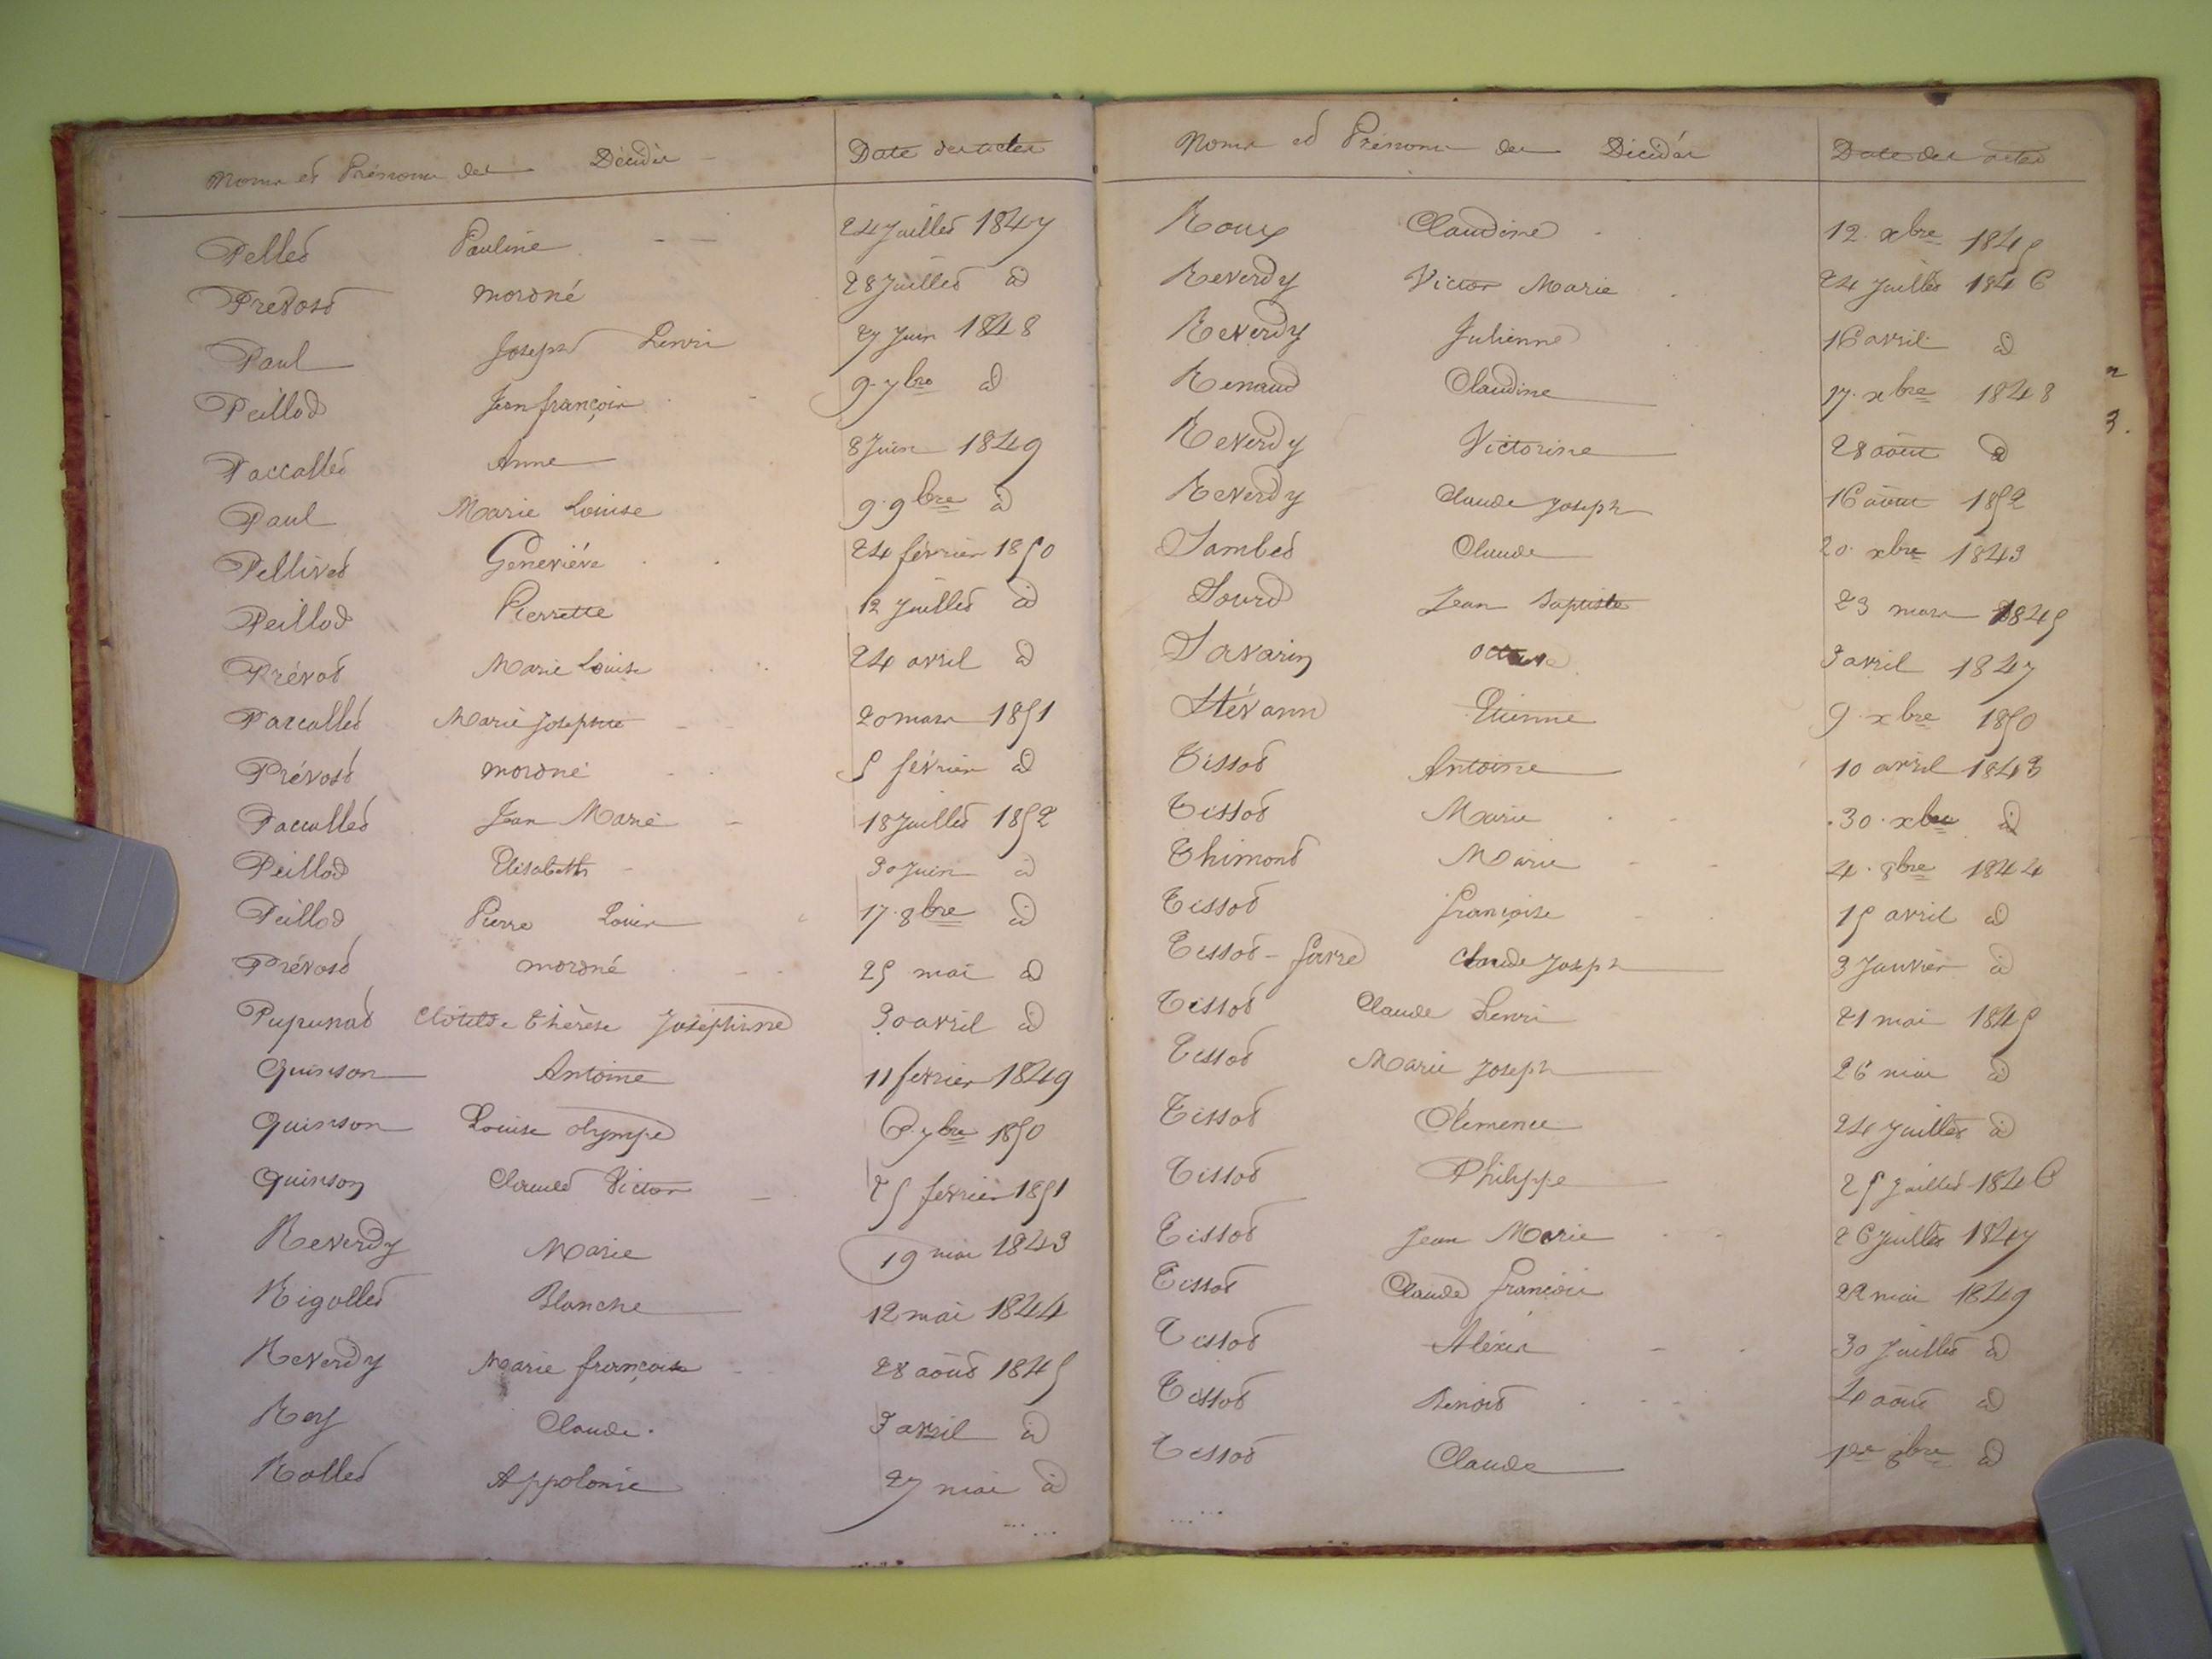 Noms et Prénoms des Décédés Date des actes
Pellet Pauline 24 Juillet 1847
Prévost mordné 28 Juillet id
Paul Joseph henri 27 Juin 1848
Peillod Jean françois 9. 7bre id
Paccallet Anne 8 Juin 1849
Paul Marie Louise 9. 9bre id
Pellivet Geneviéve 24 février 1850
Peillod Pierrette 12 Juillet id
Prévot Marie Louise 24 avril id
Paccallet Marie Josephte 20 mars 1851
Prévost mordné 5 février id
Paccallet Jean Marie 18 Juillet 1852
Peillod Elisabeth 30 Juin id
Peillod Pierre Louis 17. 8bre id
Prévost mordné 25 mai id
Pupunat Clotilde Thérèse Joséphine 30 avril id
Quinson Antoine 11 février 1849
Quinson Louise olympe 6. 7bre 1850
Quinson Claude Victor 25 février 1851
Reverdy Marie 19 mai 1843
Rigollet Blanche 12 mai 1844
Reverdy Marie françoise 28 août 1845
Rey Claude. 3 avril id
Rollet Appolonie 27 mai id
Noms et Prénoms des Décédés Date des actes
Roux Claudine 12. xbre 1845
Reverdy Victor Marie 24 Juillet 1846
Reverdy Julienne 16 avril id
Renaud Claudine 17. xbre 1848
Reverdy Victorine 28 août id
Reverdy Claude Joseph 16 août 1852
Sambet Claude 20. xbre 1843
Sourd Jean Baptiste 23 mars 1845
Savarin octave 3 avril 1847
Stévann Etienne 9. xbre 1850
Tissot Antoine 10 avril 1843
Tissot Marie 30. xbre id
Thimont Marie 4. 8bre 1844
Tissot françoise 15 avril id
Tissot-favre Claude Joseph 3 Janvier id
Tissot Claude henri 21 mai 1845
Tissot Marie Joseph 26 mai id
Tissot Clémence 24 Juillet id
Tissot Philippe 25 Juillet 1846
Tissot Jean Marie 26 Juillet 1847
Tissot Claude françois 22 mai 1849
Tissot Aléxis 30 Juillet id
Tissot Benoit 4 août id
Tissot Claude 1er 8bre id
3.